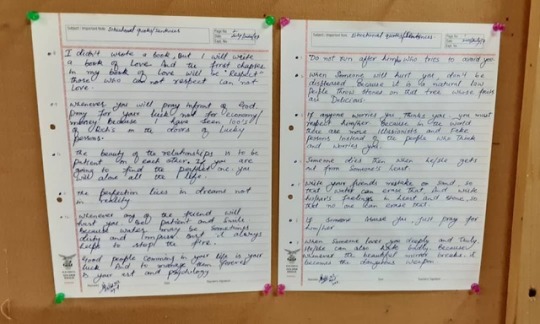 Situational quotes/Sentences
I didn't wrote a book, But I will write
a book of Love And the first chapter
in my book of Love will be "Respect"
those who can not respect can not
Love.
whenever you will pray infront of God.
pray for your luck not for
money because I have seen
of Rich's in the doors of Lucky
persons.
the beauty of the relationships is to be
patient in each other. If you are
going to find the perfect one. you
will alone all the life.
the perfection lives in dreams not
in reality
whenever any of the friend will
hurt you. Be patient and smile
because water may be sometimes
dirty and impure but it always
helps to stop the fire.
Good people comming in your life is your
luck And to manage them forever
is your art and psychology
Situational quotes/Sentences
Do not run after him/her who tries to avoid you
when Someone will hurt you, don't be
disturbed because it is a natural law
people throw stones on that tree whose fruits
are Delicious.
If anyone worries you thinks you, you must
respect him/her because in the world
there are more illusionists and fake
persons instead of the people who think
and worries you.
Someone dies then when he/she gets
out from Someone's heart.
write your friends mistake on sand, so
that water can erase that and write
his/her's feelings in heart and stone, so
that no one can erase that
If someone abuse you just pray for
him/her
when someone loves you deeply and truly.
He/she can also because
whenever the beautiful mirror breaks. it
becomes the dangerous weapon.